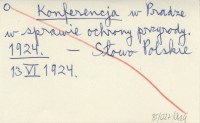 Konferencja w Pradze
w sprawie ochrony przyrody.
1924. — Słowo Polskie
13 VI 1924.